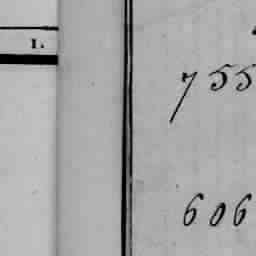 L.
755
606